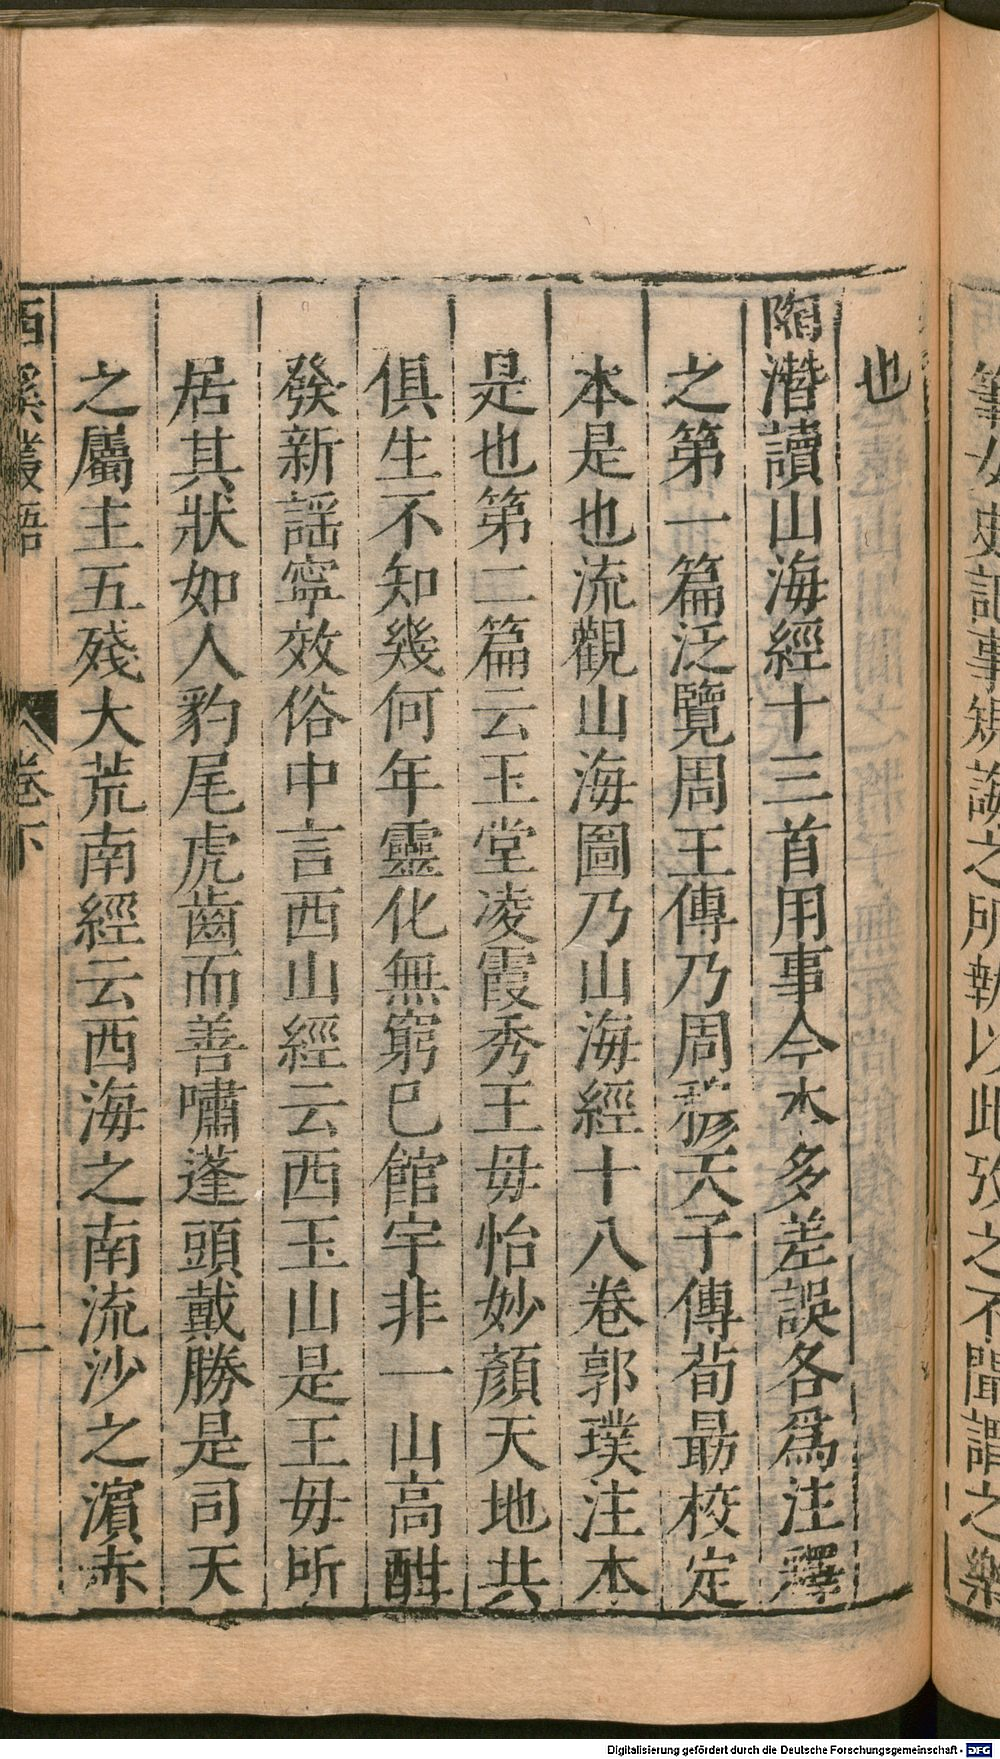 筆女史記事規誨之所執以此攷之不聞謂之樂
也
陶潛讀山海經十三首用事今本多差誤各爲注釋
之第一篇泛覽周王傳乃周穆天子傳荀勗校定
本是也流觀山海圖乃山海經十八卷郭璞注本
是也第二篇云玉堂凌霞秀王毋怡妙顔天地共
俱生不知幾何年靈化無窮巳館宇非一山高酣
發新謡寧效俗中言西山經云西玉山是王毋所
居其狀如人豹尾虎齒而善嘯蓬頭戴勝是司天
之屬主五殘大荒南經云西海之南流沙之濵赤
西溪叢語 卷下 二
Digitalisierung gefördert durch die Deutsche Forschungsgemeinschaft - DFG